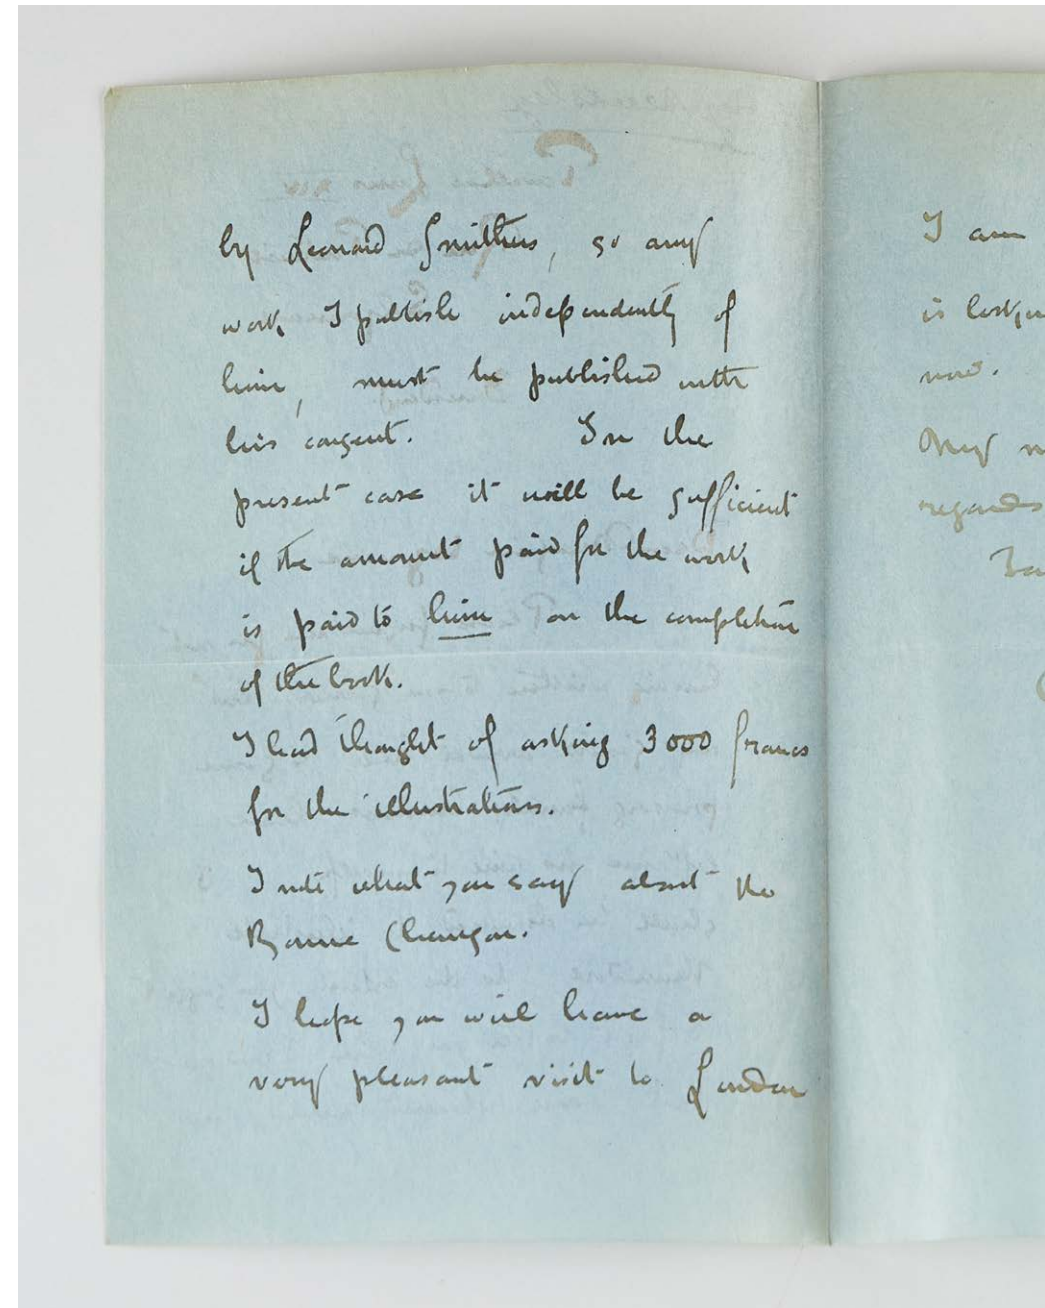 by Leonard Smithers, so any
work I publish independently of
him, must be published with
his consent. In the
present case it will be sufficient
if the amount paid for the work
is paid to him on the completion
of the book.
I had thought of asking 3000 francs
for the illustrations.
I note what you say about the
Bonne
I hope you will have a
very pleasant visit to London
I am
is lookin
now.
My m
regards